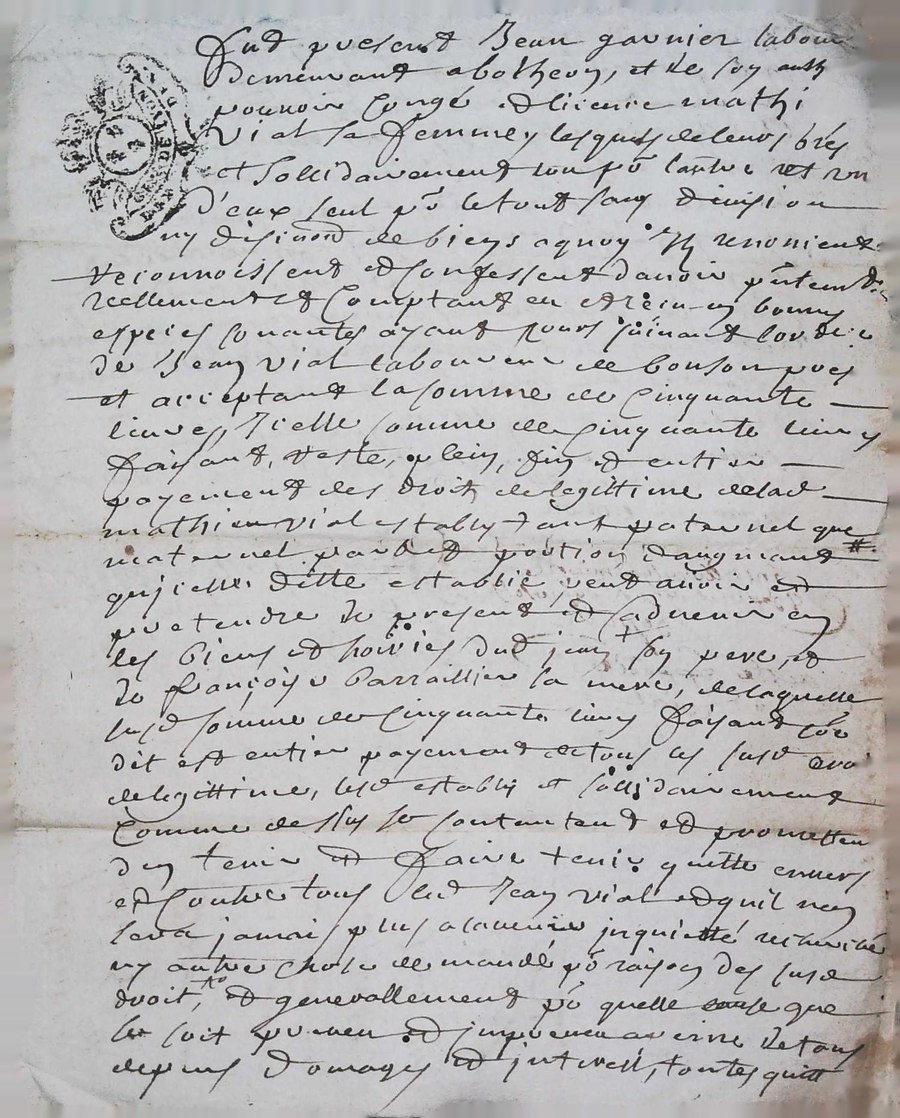 GEN. DE LYON
Fut present Jean garnier labour
Demeurant a bothéon, et de son auth
pouvoir Congé et licence mathi
Vial sa femme, lesquels de leurs grés
et sollidairement un pō lautre et un
D'eux seul pō le tout sans division
ny discution de biens a quoy renoncient
reconnoissent et Confessent d'avoir
reellement et Comptant eu et receu en bonnes
especes sonantes ayant cours suivant lordce
de Jean Vial laboureur de bonson pnt
et acceptant la somme de Cinquante
livres, Icelle somme de Cinquante livres
faisant, reste, plein, fin et entier
payement des droits de legittime de lad
mathieu Vial establye tant paternel que
maternel part et portion daugmant #
qu'icelle ditte establie peut avoir et
pretendre de present et advenir en
les biens et hoiries dud jean + son pere, et
de françoise Barraillier sa mere, de laquelle
susd somme de Cinquante livres faisant coe
dit est entier payement de tous les susd droi
de legittime, lesd establis et sollidairement
Comme dessus se contentent et promettent
den tenir et faire tenir quitte envers
et Contre tous led Jean Vial et quil nen
sera jamais plus a ladvenir inquietté recherché
ny autre chose demandé pō raison des susd
droits, et generallement pō quelle cause que
ce soit preveu et impreveu a peine de tous
depens domages et interest, toutes quitt